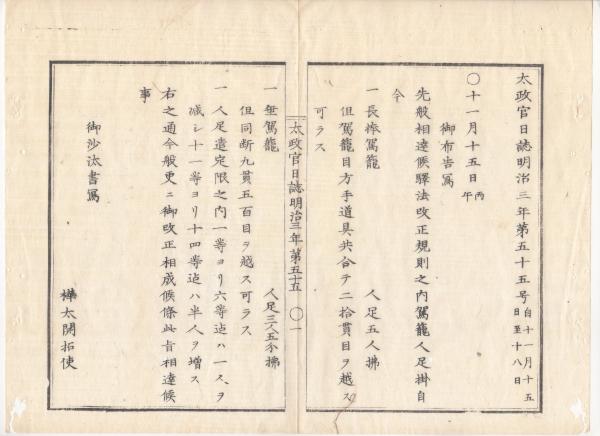 太政官日誌明治三年第五十五号 自十一月十五日至十八日
〇十一月十五日 丙午
御布告写
先般相達候驛法改正規則之内駕籠人足掛自
今
一長棒駕籠 人足五人拂
但駕籠目方手道具共合テ二拾貫目ヲ越ス
可ラス
太政官日誌明治三年第五十五 〇一
一垂駕籠 人足三人五分拂
但同断九貫五百目ヲ越ス可ラス
一人足遣定限之内一等ヨリ六等迠ハ一人ヲ
减シ十一等ヨリ十四等迠ハ半人ヲ増ス
右之通今般更ニ御改正相成候條此旨相達候
事
御沙汰書寫
樺太開拓使